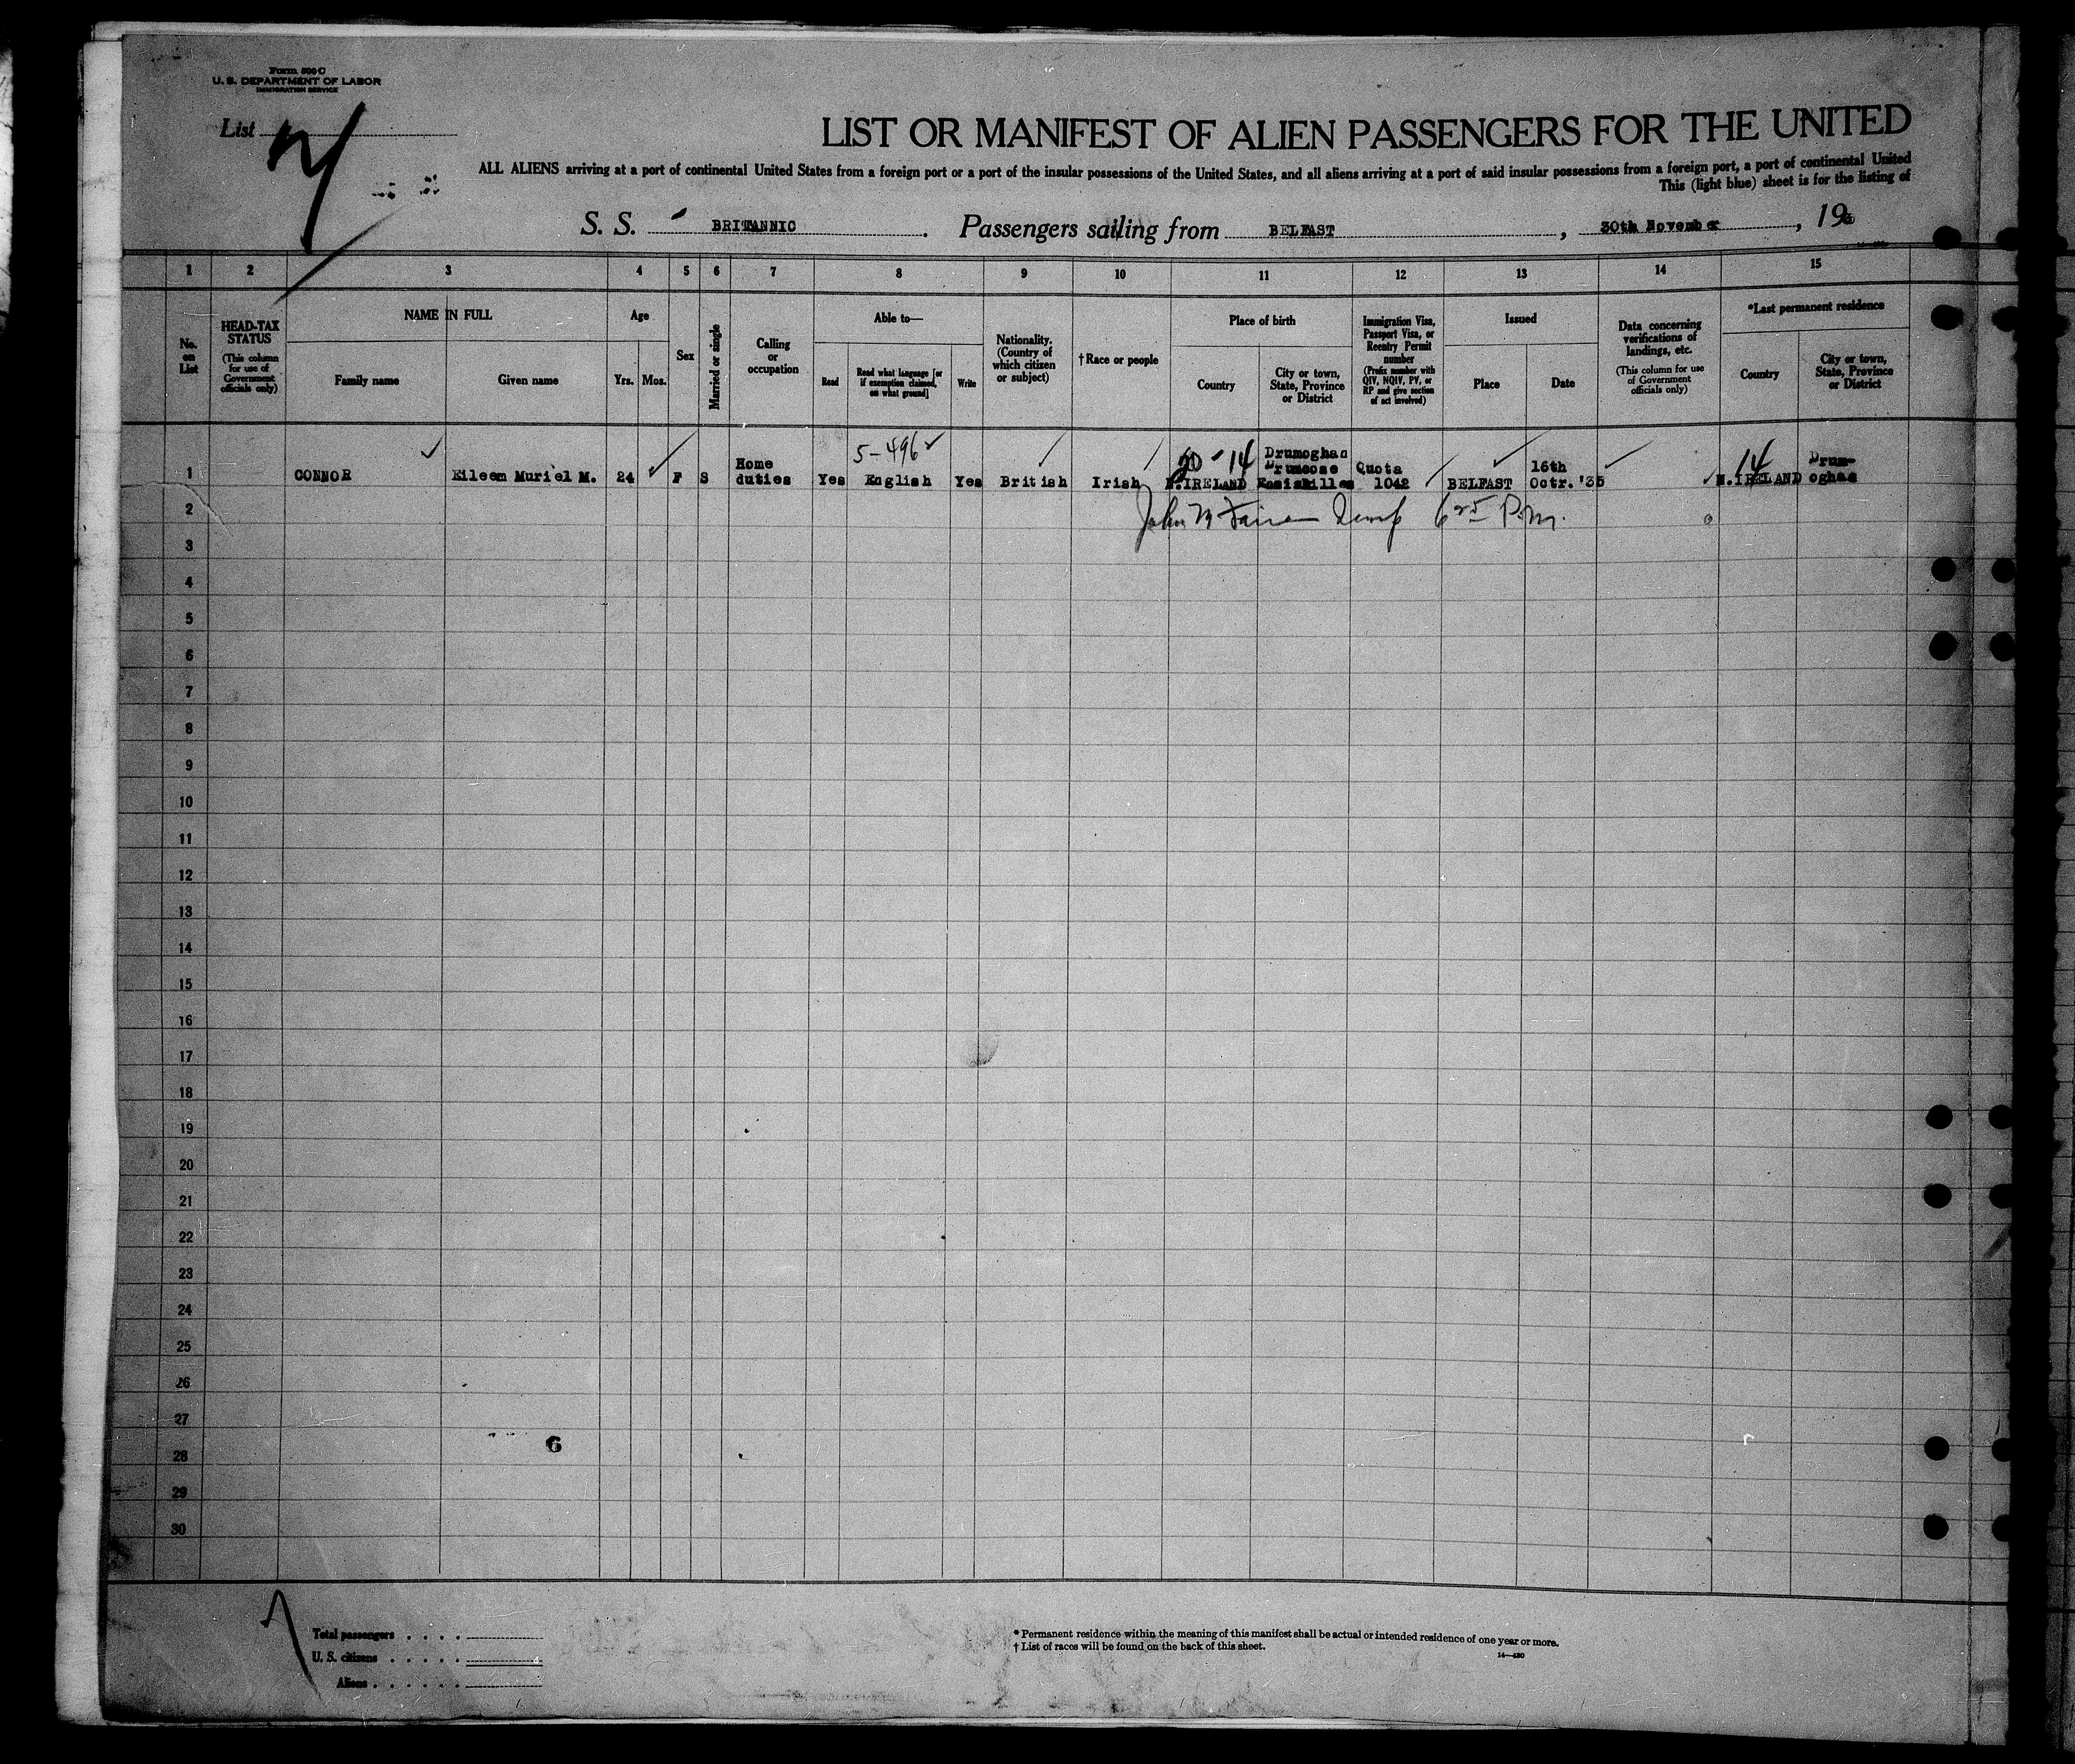 Form 500 C
U. S. DEPARTMENT OF LABOR
IMMIGRATION SERVICE
List
LIST OR MANIFEST OF ALIEN PASSENGERS FOR THE UNITED
ALL ALIENS arriving at a port of continental United States from a foreign port or a port of the insular possessions of the United States, and all aliens arriving at a port of said insular possessions from a foreign port, a port of continental United
This (light blue) sheet is for the listing of
S. S. BRITANNIC. Passengers sailing from BELFAST, 30th November, 193
1 2 3 4 5 6 7 8 9 10 11 12 13 14 15
No. on List
HEAD-TAX STATUS
(This column for use of Government officials only)
NAME IN FULL
Family name
Given name
Age
Yrs. Mos.
Sex
Married or single
Calling or occupation
Able to—
Read
Read what language [or if exemption claimed, on what ground]
Write
Nationality. (Country of which citizen or subject)
†Race or people
Place of birth
Country
City or town, State, Province or District
Immigration Visa, Passport Visa, or Reentry Permit number
(Prefix number with QIV, NQIV, PV, or RP and give section of act involved)
Issued
Place
Date
Data concerning verifications of landings, etc.
(This column for use of Government officials only)
*Last permanent residence
Country
City or town, State, Province or District
5-496
20-14
14
1 CONNOR Eileen Muriel M. 24 F S Home duties Yes English Yes British Irish N.IRELAND Drumoghan Quota 1042 BELFAST 16th Octr. '35 N.IRELAND Drum-
John 6 25 P.M.
2
3
4
5
6
7
8
9
10
11
12
13
14
15
16
17
18
19
20
21
22
23
24
25
26
27
6
28
29
30
Total passengers . . . .
U. S. citizens . . . . .
Aliens . . . . . .
* Permanent residence within the meaning of this manifest shall be actual or intended residence of one year or more.
† List of races will be found on the back of this sheet.
14—430